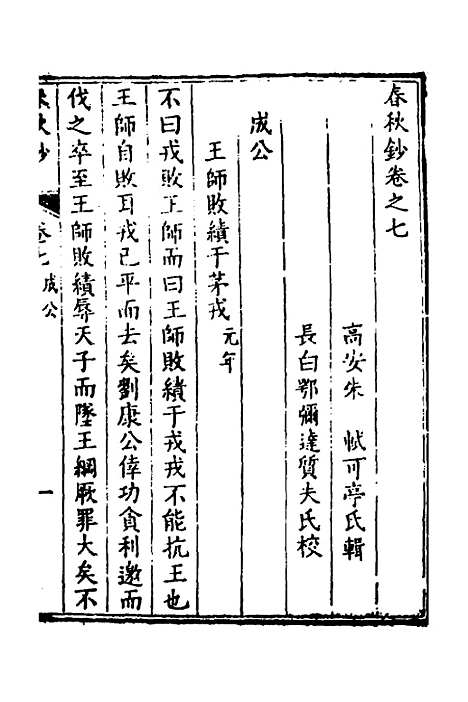 春秋鈔卷之七
高安朱 軾可亭氏輯
長白鄂彌達質夫氏校
成公
王師敗績于茅戎 元年
不曰戎敗王師而曰王師敗績于戎戎不能抗王也
王師自敗耳戎已平而去矣劉康公倖功貪利邀而
伐之卒至王師敗績辱天子而墜王綱厥罪大矣不
春秋鈔 卷七 成公 一